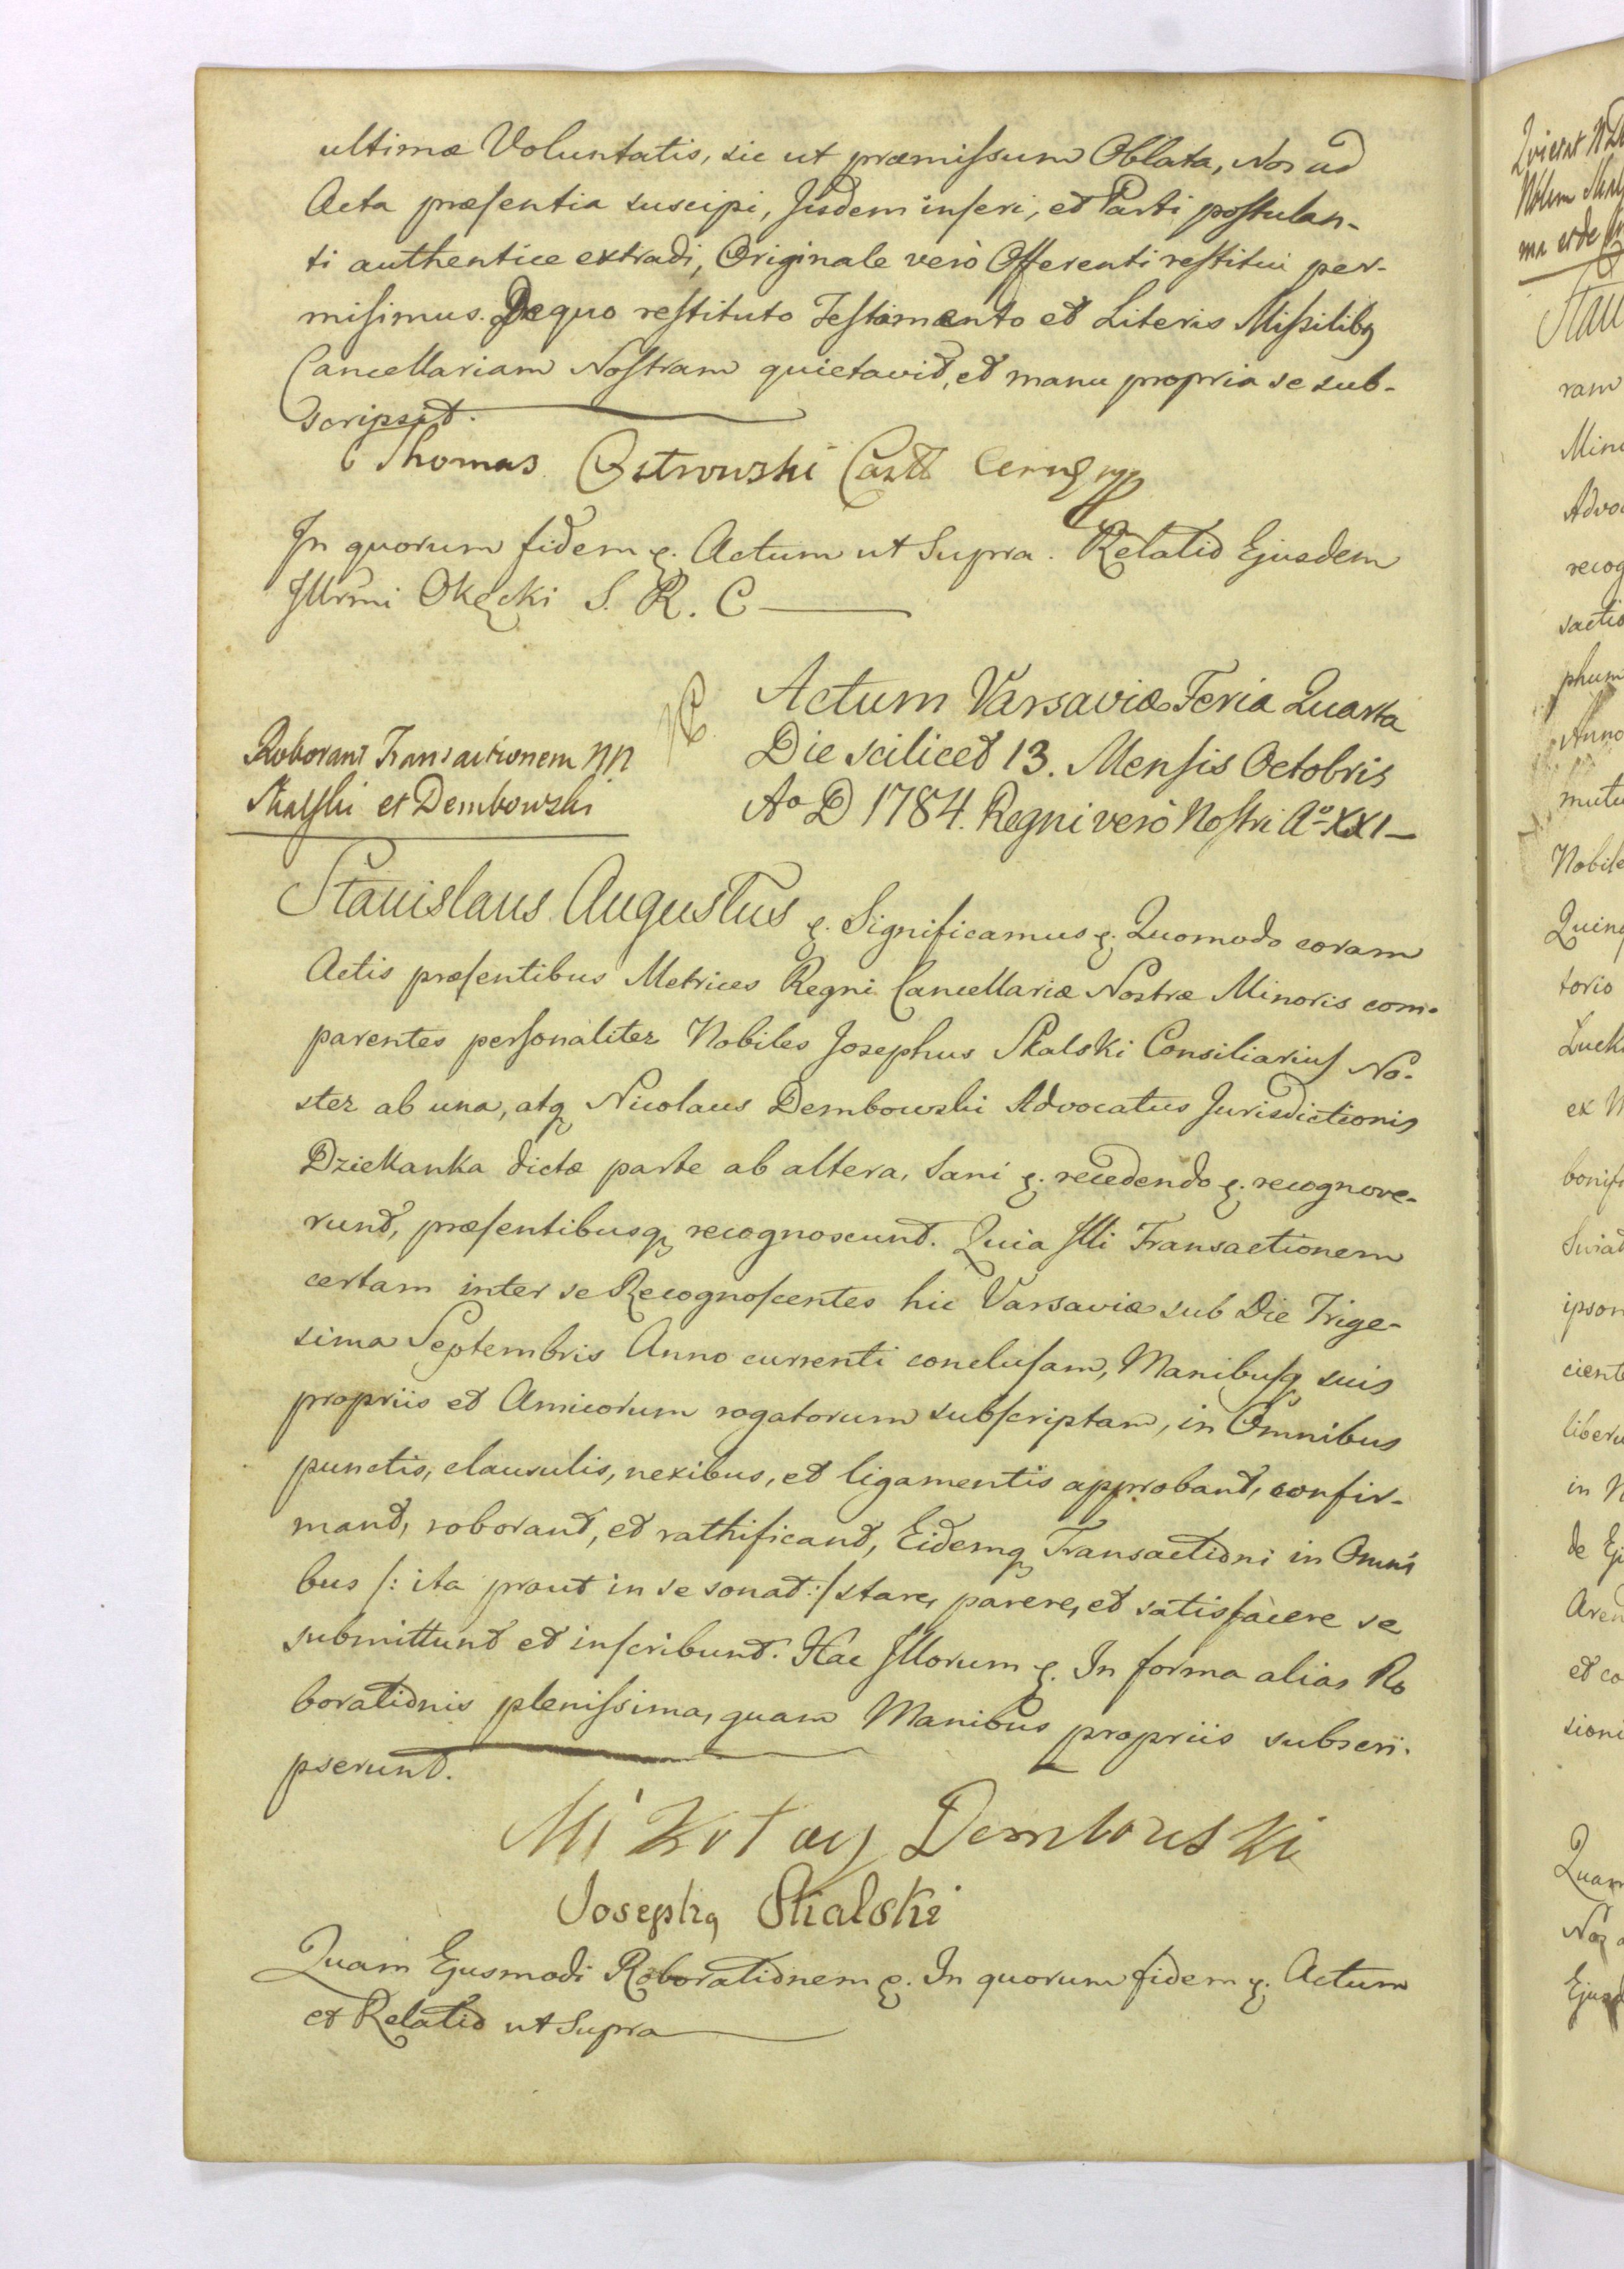 ultimæ Voluntatis, sic ut præmissum Oblata, Nos ad
Acta præsentia suscipi, Jisdem inseri, et Parti postulan-
ti authentice extradi, Originale verò Offerenti restitui per-
misimus. De quo restituto Testamento et Literis Missilibq
Cancellariam Nostram quietavit, et manu propria se sub-
scripsit.
Thomas Ostrowski Casttt Cerng mp
In quorum fidem ꝛ. Actum ut Supra. Relatio Ejusdem
Jllrmi Okęcki S. R. C
Actum Varsaviæ Feria Quarta
Die scilicet 13. Mensis Octobris
Ao D 1784. Regni verò Nostri Ao XXI
Roborant Transactionem NN
Skalski et Dembowski
Stanislaus Augustus ꝛ. Significamus ꝛ. Quomodo coram
Actis præsentibus Metrices Regni Cancellariæ Nostræ Minoris com-
parentes personaliter Nobiles Josephus Skalski Consiliarius No-
ster ab una, atq Nicolaus Dembowski Advocatus Jurisdictionis
Dziekanka dictæ parte ab altera, Sani ꝛ. recedendo ꝛ. recognove-
runt, præsentibusq recognoscunt. Quia Jlli Transactionem
certam inter se Recognoscentes hic Varsaviæ sub Die Trige-
sima Septembris Anno currenti conclusam, Manibusq suis
propriis et Amicorum rogatorum subscriptam, in Omnibus
punctis, clausulis, nexibus, et ligamentis approbant, confir-
mant, roborant, et rathificant, Eidemq Transactioni in Omni
bus /: ita prout in se sonat :/ stare, parere, et satisfacere se
submittunt et inscribunt. Hac Jllorum ꝛ. In forma alias Ro
borationis plenissima, quam Manibus propriis subscri-
pserunt.
Mikołay Dembowski
Josephq Skalski
Quam Ejusmodi Roborationem ꝛ. In quorum fidem ꝛ. Actum
et Relatio ut Supra
Stau
ram
Mino
Advoc
recog
sactio
phum
Anno
mutu
Nobile
Quinq
torio
Luck
ex N
bonif
ipsor
cient
liber
in N
de Ej
Aren
et co
sioni
Quam
Ejusd